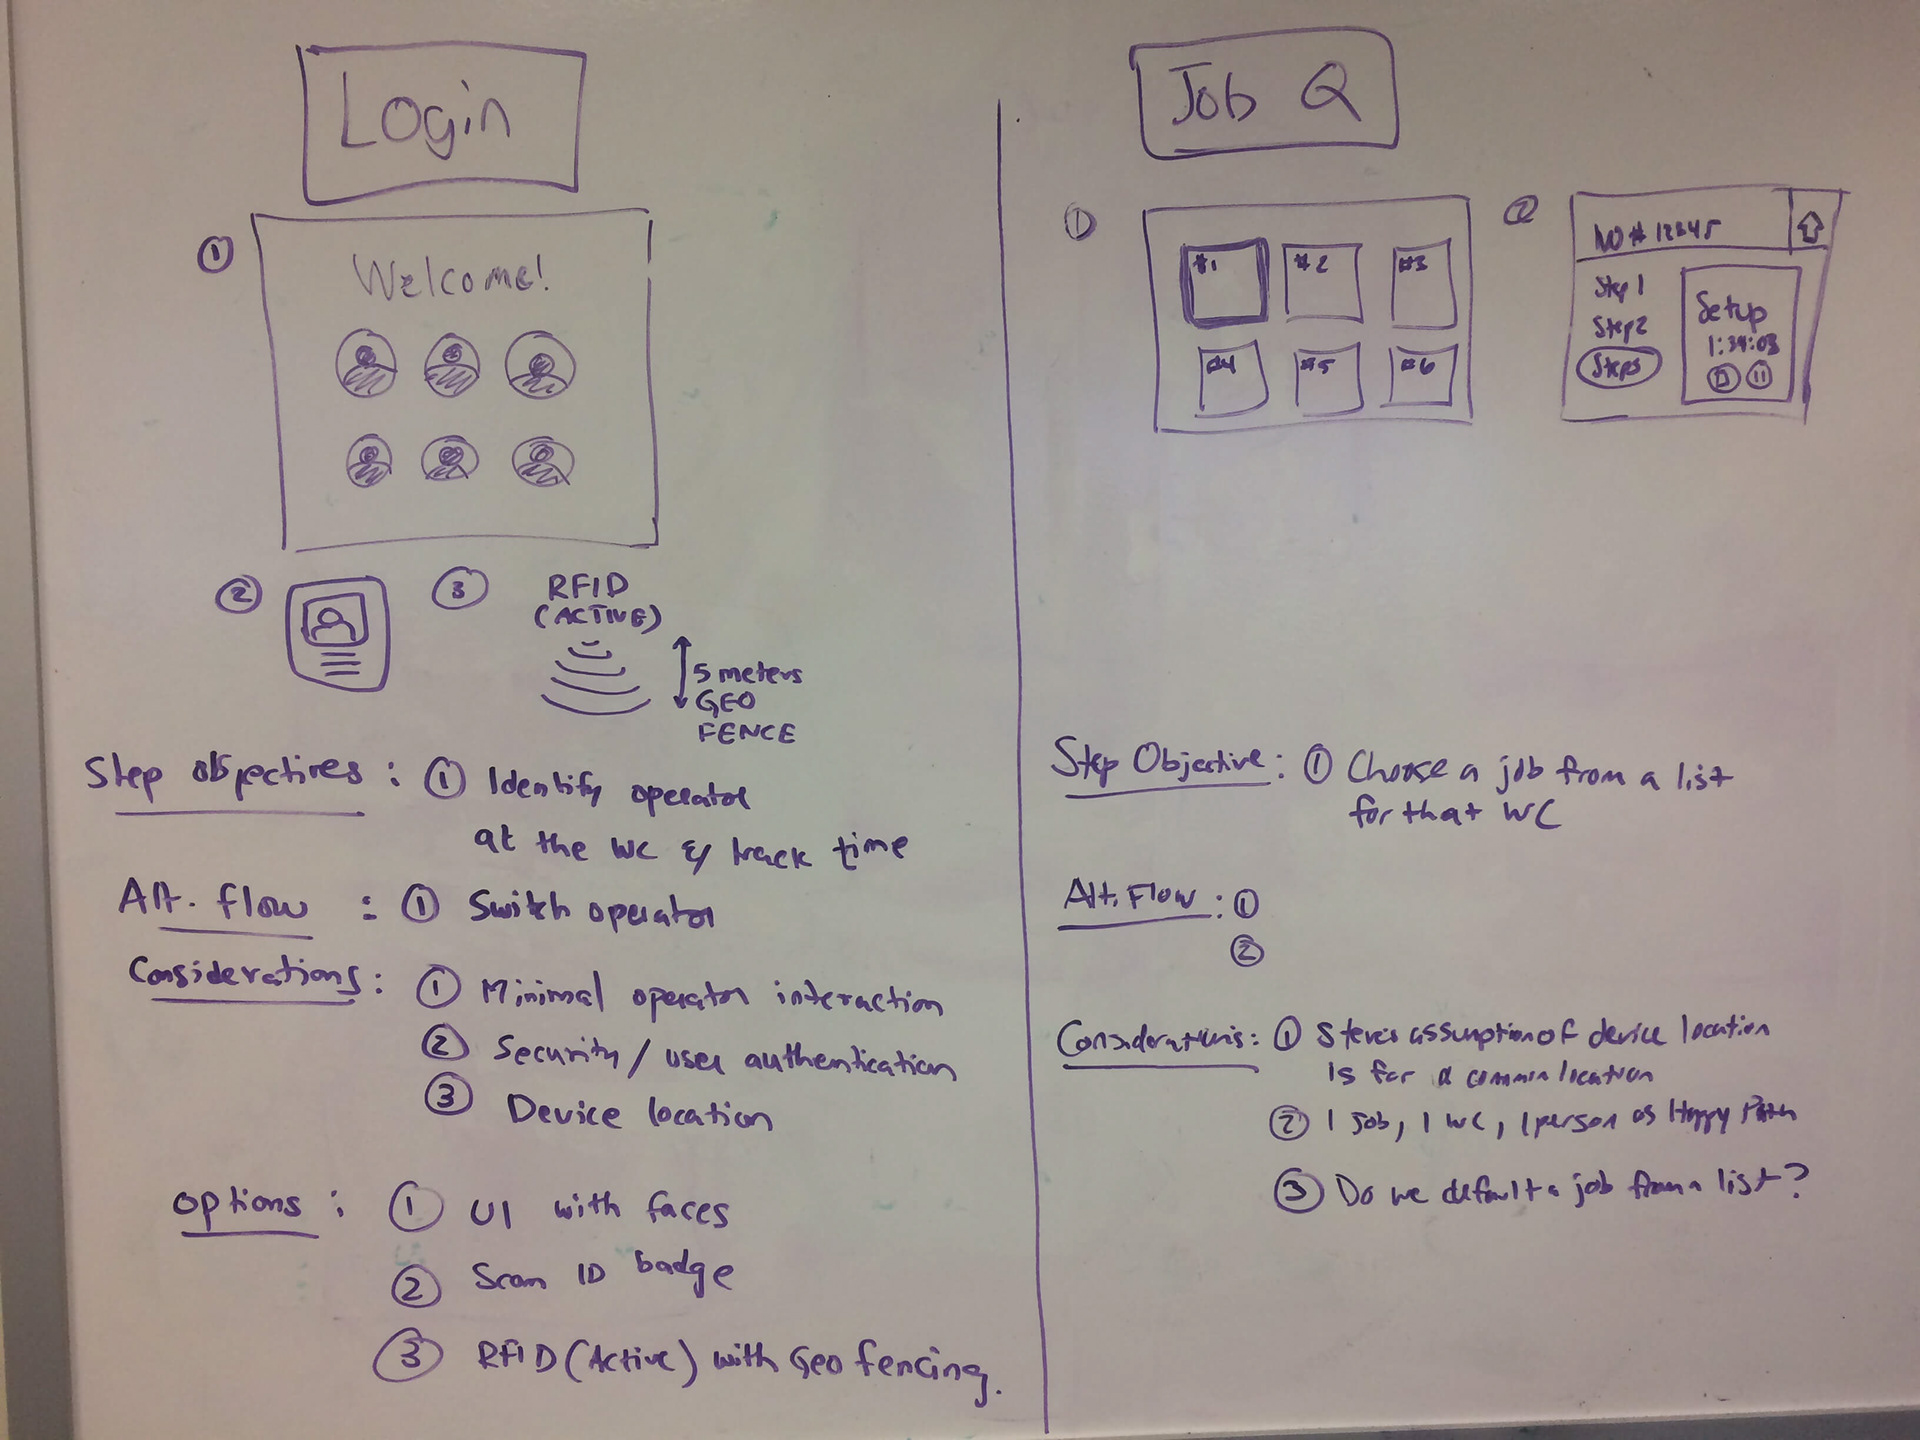 Login
①
Welcome!
②
③ RFID
(ACTIVE)
5 meters
GEO
FENCE
Step objectives: ① Identify operator
at the WC & track time
Alt. flow : ① Switch operator
Considerations: ① Minimal operator interaction
② Security / user authentication
③ Device location
options : ① UI with faces
② Scan ID badge
③ RFID (Active) with Geo fencing.
Job Q
①
#1 #2 #3
#4 #5 #6
②
# 12345
Step 1
Step 2
Step 3
Setup
1:34:03
Step Objective: ① Choose a job from a list
for that WC
Alt. Flow: ①
②
Considerations: ① Steve's assumption of device location
is for a common location
② 1 job, 1 WC, 1 person as Happy Path
③ Do we default a job from a list?